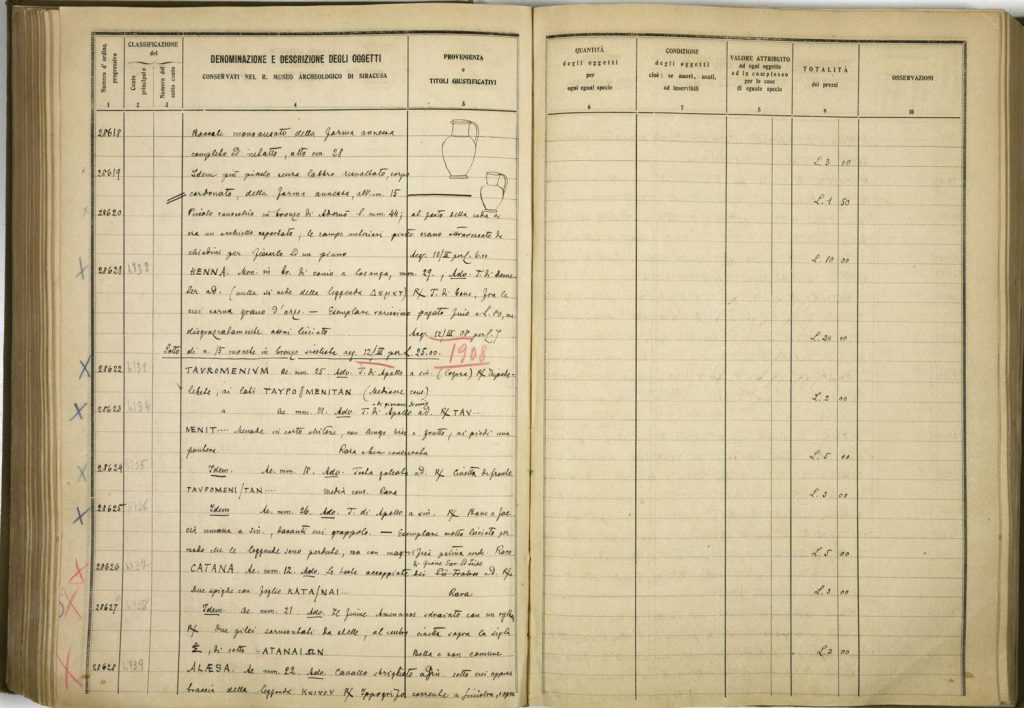 Numero d'ordine progressivo
CLASSIFICAZIONE del
Conto principale
Numero del sotto conto
DENOMINAZIONE E DESCRIZIONE DEGLI OGGETTI
CONSERVATI NEL R. MUSEO ARCHEOLOGICO DI SIRACUSA
PROVENIENZA
e
TITOLI GIUSTIFICATIVI
1 2 3 4 5
28618 Boccale monoansato della forma annessa
completo ed intatto, alto cm 28
28619 Idem più piccolo labbro corpo
cordonato, della forma annessa, alt. m. 15
28620 Piccolo in bronzo di Adernò l. mm. 44; al posto della coda vi
era un anchello asportato; le zampe anteriori erano attraversate da
chiodini per fissarlo ad un piano Acq. 12/III per L. 6.00
28621 HENNA. Mon. in br. di conio a losanga, mm. 29., Adv. T. di Deme-
ter a d. (nulla si vede della leggenda ΔΑΜΑΤ) R/ T. di bove, fra le
cui corna grano d'orzo. — Esemplare rarissimo pagato L. 80, ma
disgraziatamente assai lisciato Acq. 12/III 08 per L. 7
Sotto di n. 15 monete in bronzo siceliote acq. 12/III per L. 25.00. 1908
28622 TAVROMENIVM Ae. mm. 25 Adv. T. di Apollo a sin. R/
ai lati ΤΑΥΡΟ ΜΕΝΙΤΑΝ (Mediocre cons)
28623 " Ae. mm. 21. Adv. T. di Apollo a d. R/ ΤΑΥ....
ΜΕΝΙΤ.... Menade in corto chitone, con lungo e ai piedi una
pantera. Rara
28624 Idem. Ae. mm. 18. Adv. Testa galeata a d. R/ Civetta di fronte
ΤΑΥΡΟΜΕΝΙ/ΤΑΝ.... Media cons. Rara
28625 Idem Ae. mm. 26. Adv. T. di Apollo a sin. R/ a fac-
cia umana a sin., davanti cui grappolo. — Esemplare molto lisciato per
modo che le leggende sono perdute, ma con magnifica patina verde. Raro
28626 CATANA. Ae. mm. 12. Adv. le teste accoppiate dei a d. R/
Due spighe con foglie ΚΑΤΑ/ΝΑΙ.... Rara
28627 Idem. Ae. mm. 21. Adv. Il fiume Amenanos sdraiato con un
R/ Due pilei sormontati da stelle, al centro civetta sopra la sigla
di sotto ..ΑΤΑΝΑΙΩΝ Bella e non comune
28628 ALÆSA. Ae mm. 22. Adv. Cavallo a sin. sotto cui appare
traccia della leggenda R/ Ippogrifo corrente a sinistra, sopra
QUANTITÀ
degli oggetti
per
ogni egual specie
CONDIZIONE
degli oggetti
cioè: se nuovi, usati,
od inservibili
VALORE ATTRIBUITO
ad ogni oggetto
ed in complesso
per le cose
di eguale specie
TOTALITÀ
dei prezzi
OSSERVAZIONI
6 7 8 9 10
L. 3 00
L. 1 50
L. 10 00
L. 20 00
L. 2 00
L. 5 00
L. 3 00
L. 5 00
L. 3 00
L. 3 00